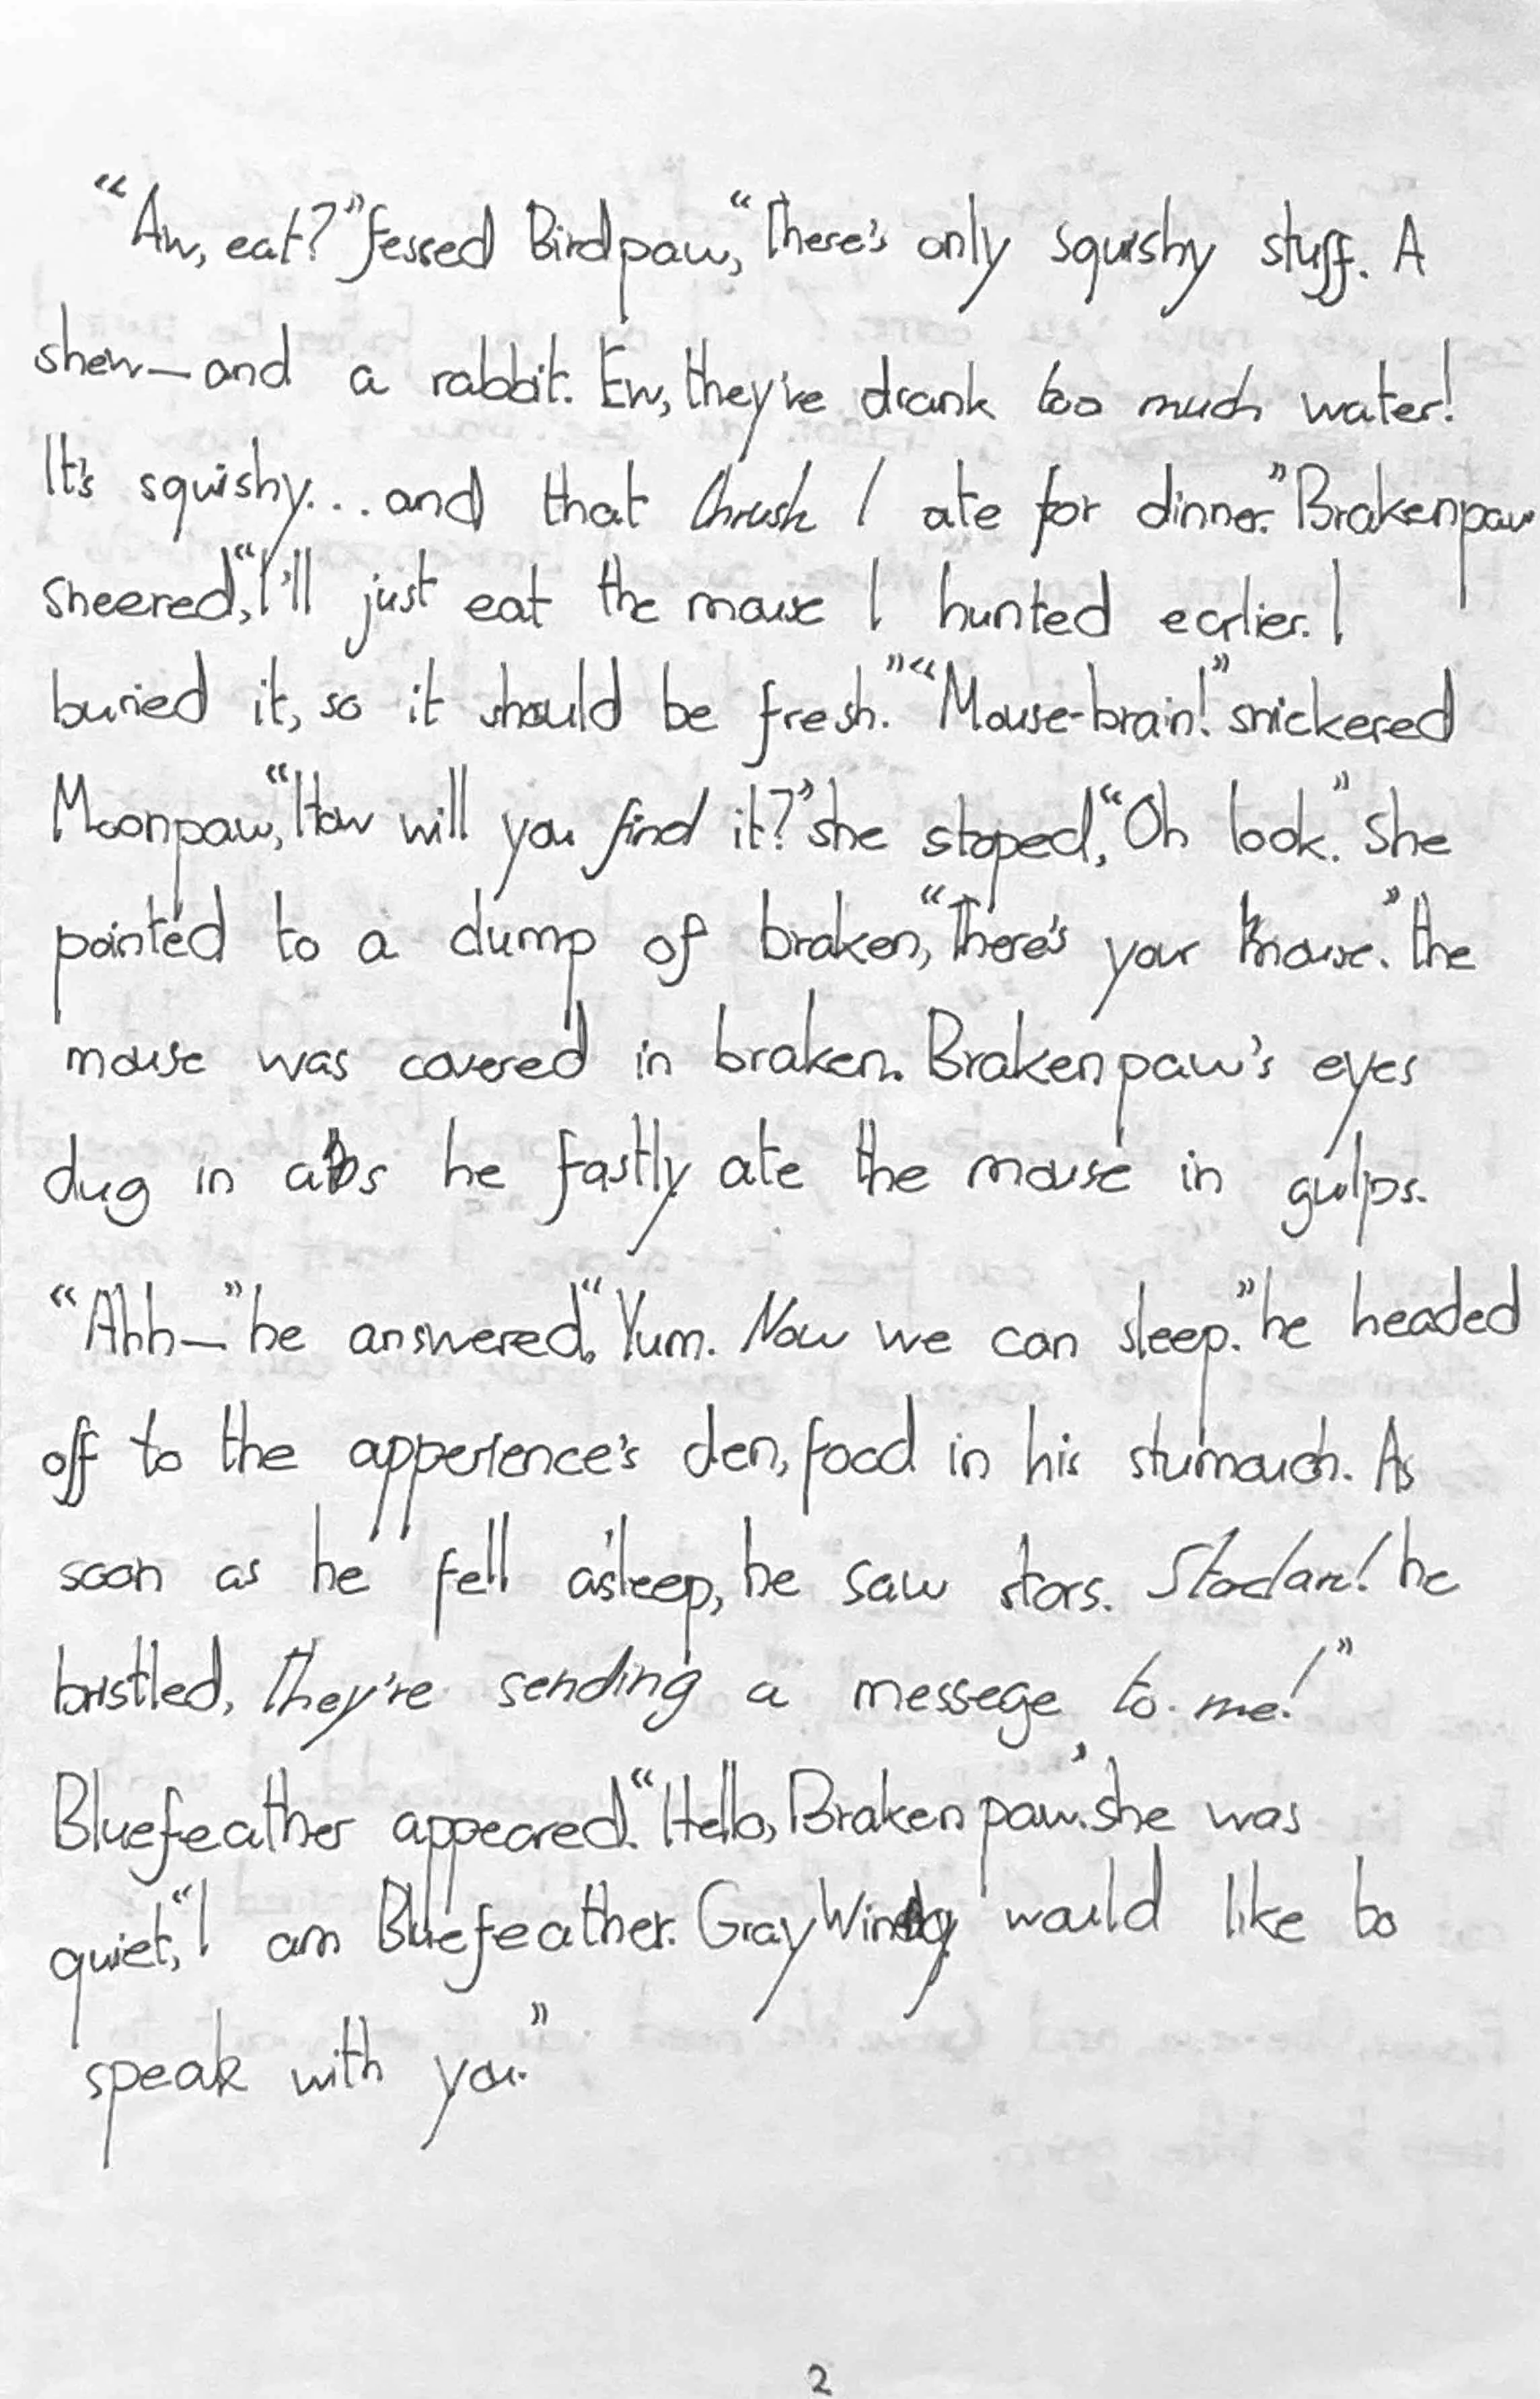 “Aw, eat?” fessed Birdpaw, “There's only squishy stuff. A
shew—and a rabbit. Ew, they've drank too much water!
It's squishy... and that thrush I ate for dinner.” Brakenpaw
sneered, “I'll just eat the mouse I hunted earlier. I
buried it, so it should be fresh.” “Mouse-brain!” snickered
Moonpaw, “How will you find it?” she stoped, “Oh look.” She
pointed to a clump of braken, “There's your mouse.” the
mouse was covered in braken. Brakenpaw's eyes
dug in as he fastly ate the mouse in gulps.
“Ahh—” he answered, “Yum. Now we can sleep.” he headed
off to the apperence's den, food in his stumouch. As
soon as he fell asleep, he saw stars. Starclan! he
bristled, They're sending a messege to me!”
Bluefeather appeared. “Hello, Brakenpaw.” she was
quiet, “I am Bluefeather. Gray Wing would like to
speak with you.”
2